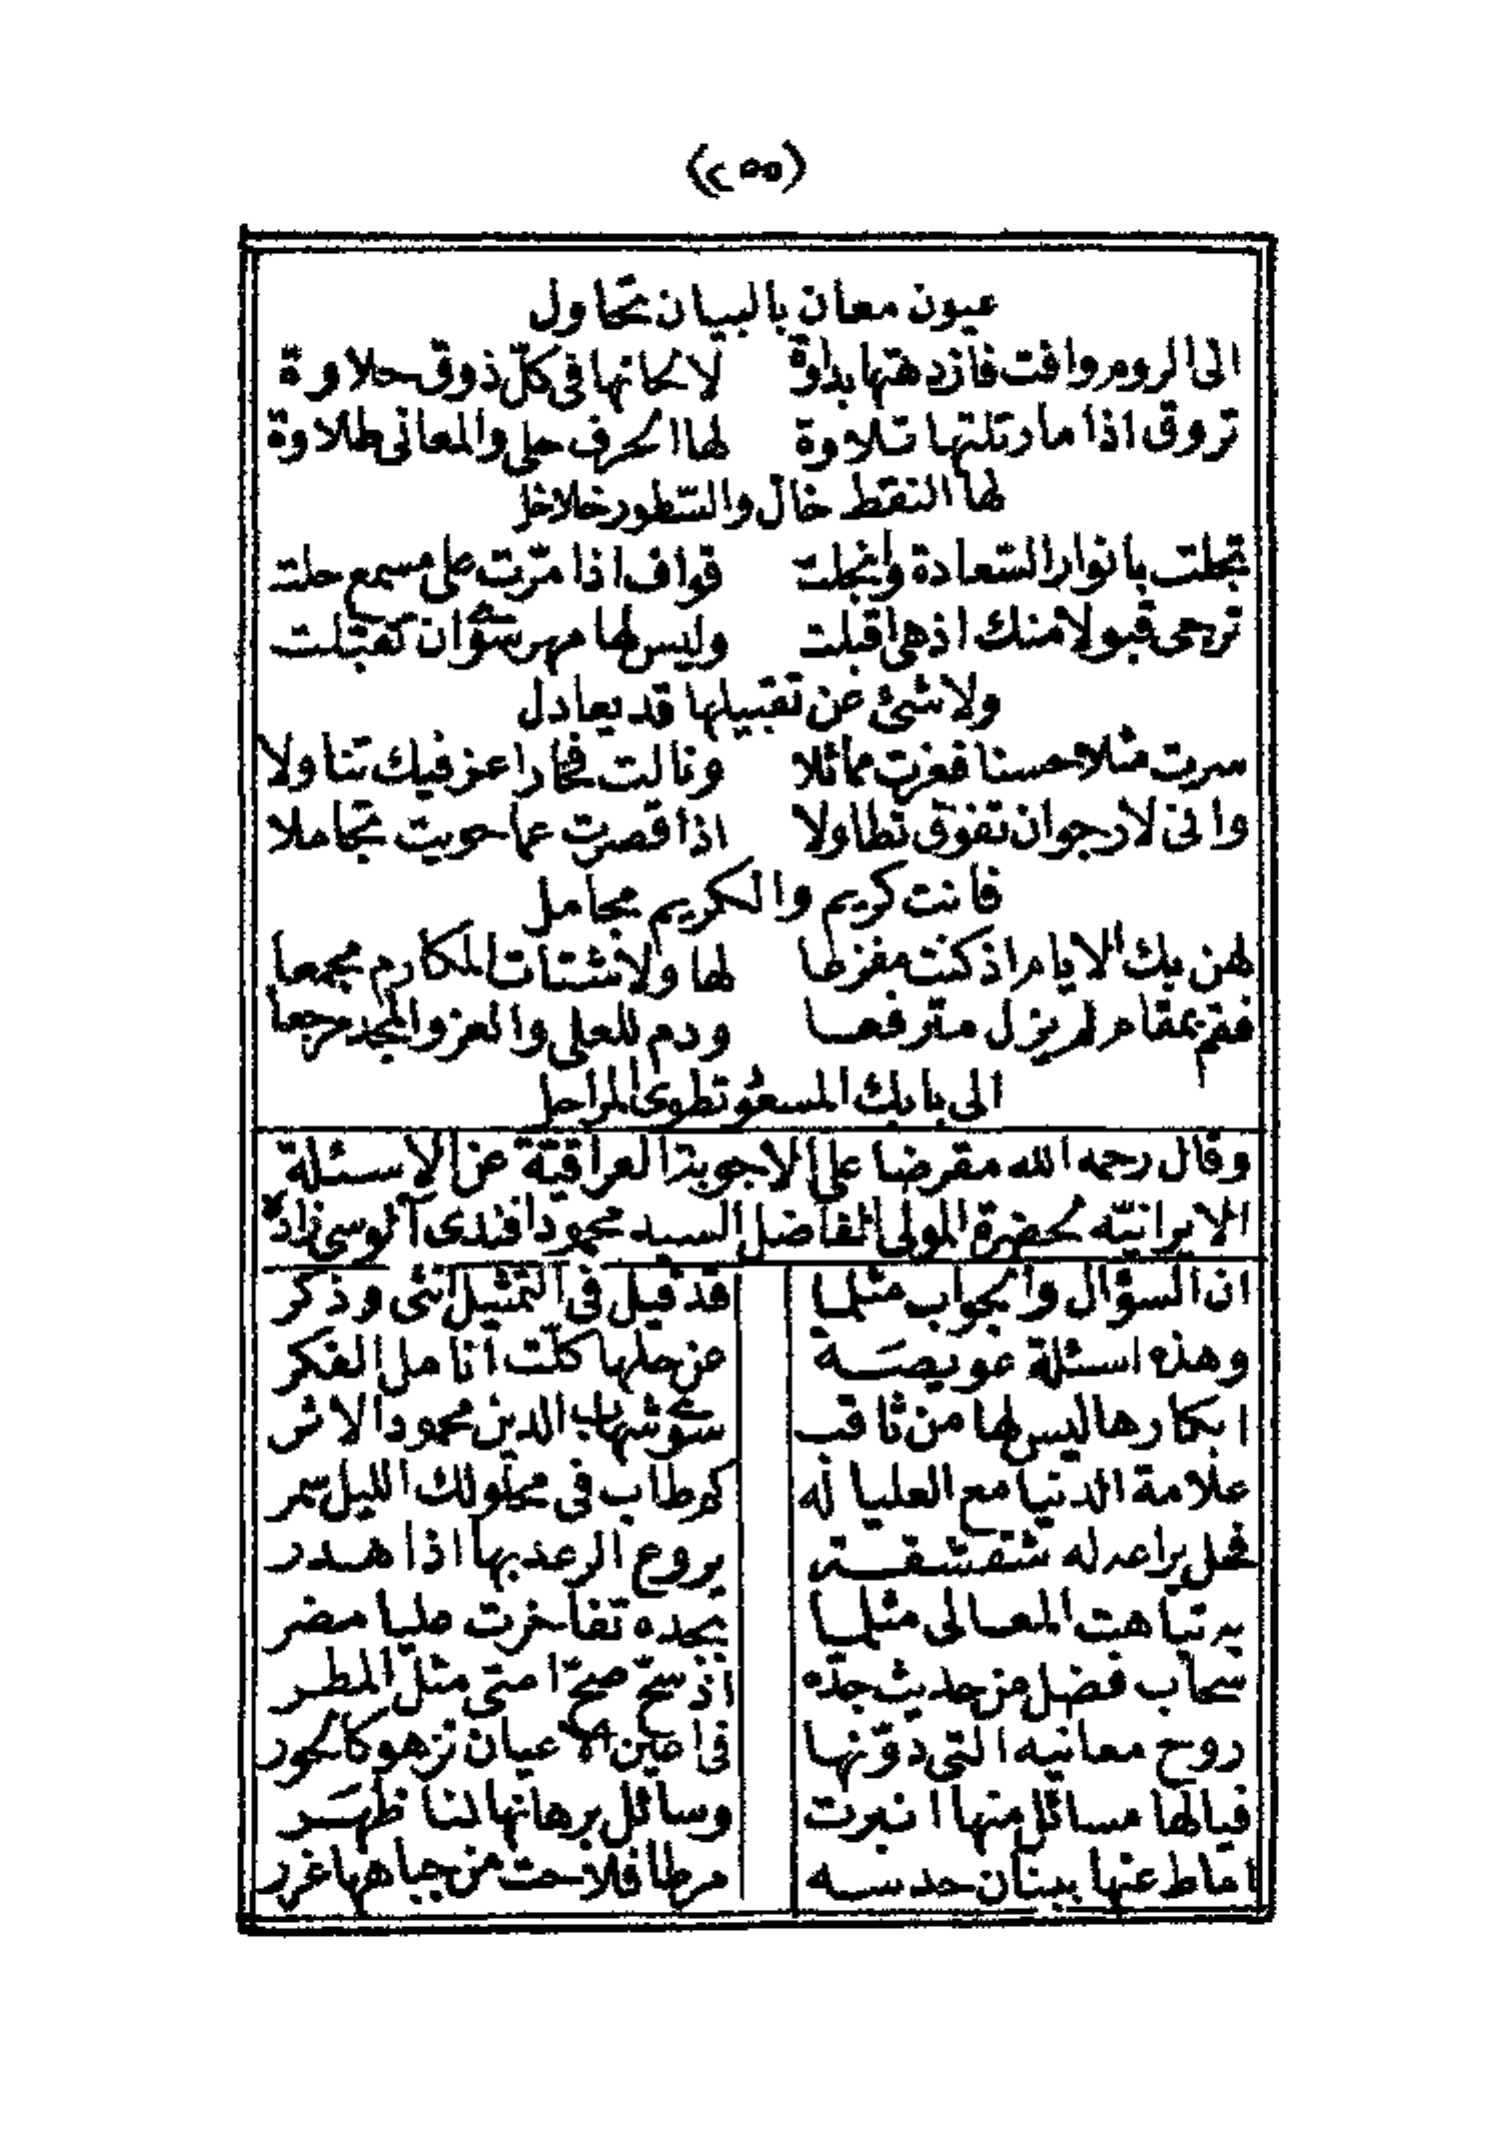 (٢٥٥)
عيون معان بالبيان تحاول
الى الروم وافت فازدهتها بداوة لاكانها فى كلّ ذوق حلاوة
تروق اذا ما رتلتها تلاوة لها الحرف حلى والمعانى طلاوة
لها النقط خال والسّطور خلاخل
تجلت بانوار السّعادة وانجلت قواف اذا مرّت على مسمع حلت
ترجى قبولا منك اذ هى اقبلت وليس لها مهر سوى ان تقبّلت
ولا شئ عن تقبيلها قد يعادل
سرت مثلا حسنا فغزت مماثلا ونالت فخارا عز فيك تناولا
وانى لارجو ان تفوق تطاولا اذا قصرت عما حويت تجاملا
فانت كريم والكريم مجامل
لهن بك الايام اذ كنت مفزعا لها ولاشتات المكارم مجمعا
فقم بمقام لم يزل مترفعا ودم للعلى والعز والمجد مرجعا
الى بابك المسعود تطوى المراحل
وقال رحمه الله مقرضا على الاجوبة العراقيّة عن الاسئلة
الايرانيّه لحضرة المولى الفاضل السيد محمود افندى آلوسى زاده
ان السؤال والجواب مثلما قد قيل فى التمثيل انثى وذكر
وهذه اسئلة عويصَة عن حلها كلّت انامل الفكر
ابكارها ليس لها من ثاقب سوى شهاب الدين محمود الاثر
علامة الدنيا مع العليا له كم طاب فى مجلولك الليل سمر
فحل يراعه له شقشقة يروع الرعد بها اذا هدر
به تباهت المعالى مثلما بجده تفاخرت عليا مضر
سحاب فضل من حديث جدّه اذ سحّ صحّ امتى مثل المطر
روح معانيه التى دوّنها فى اعين الاعيان تزهو كالحور
فيالها مسائل منها انبرت وسائل برهانها لنا ظهَر
اماط عنها ببنان حدسه مرطا فلاحت من جباهها غرر